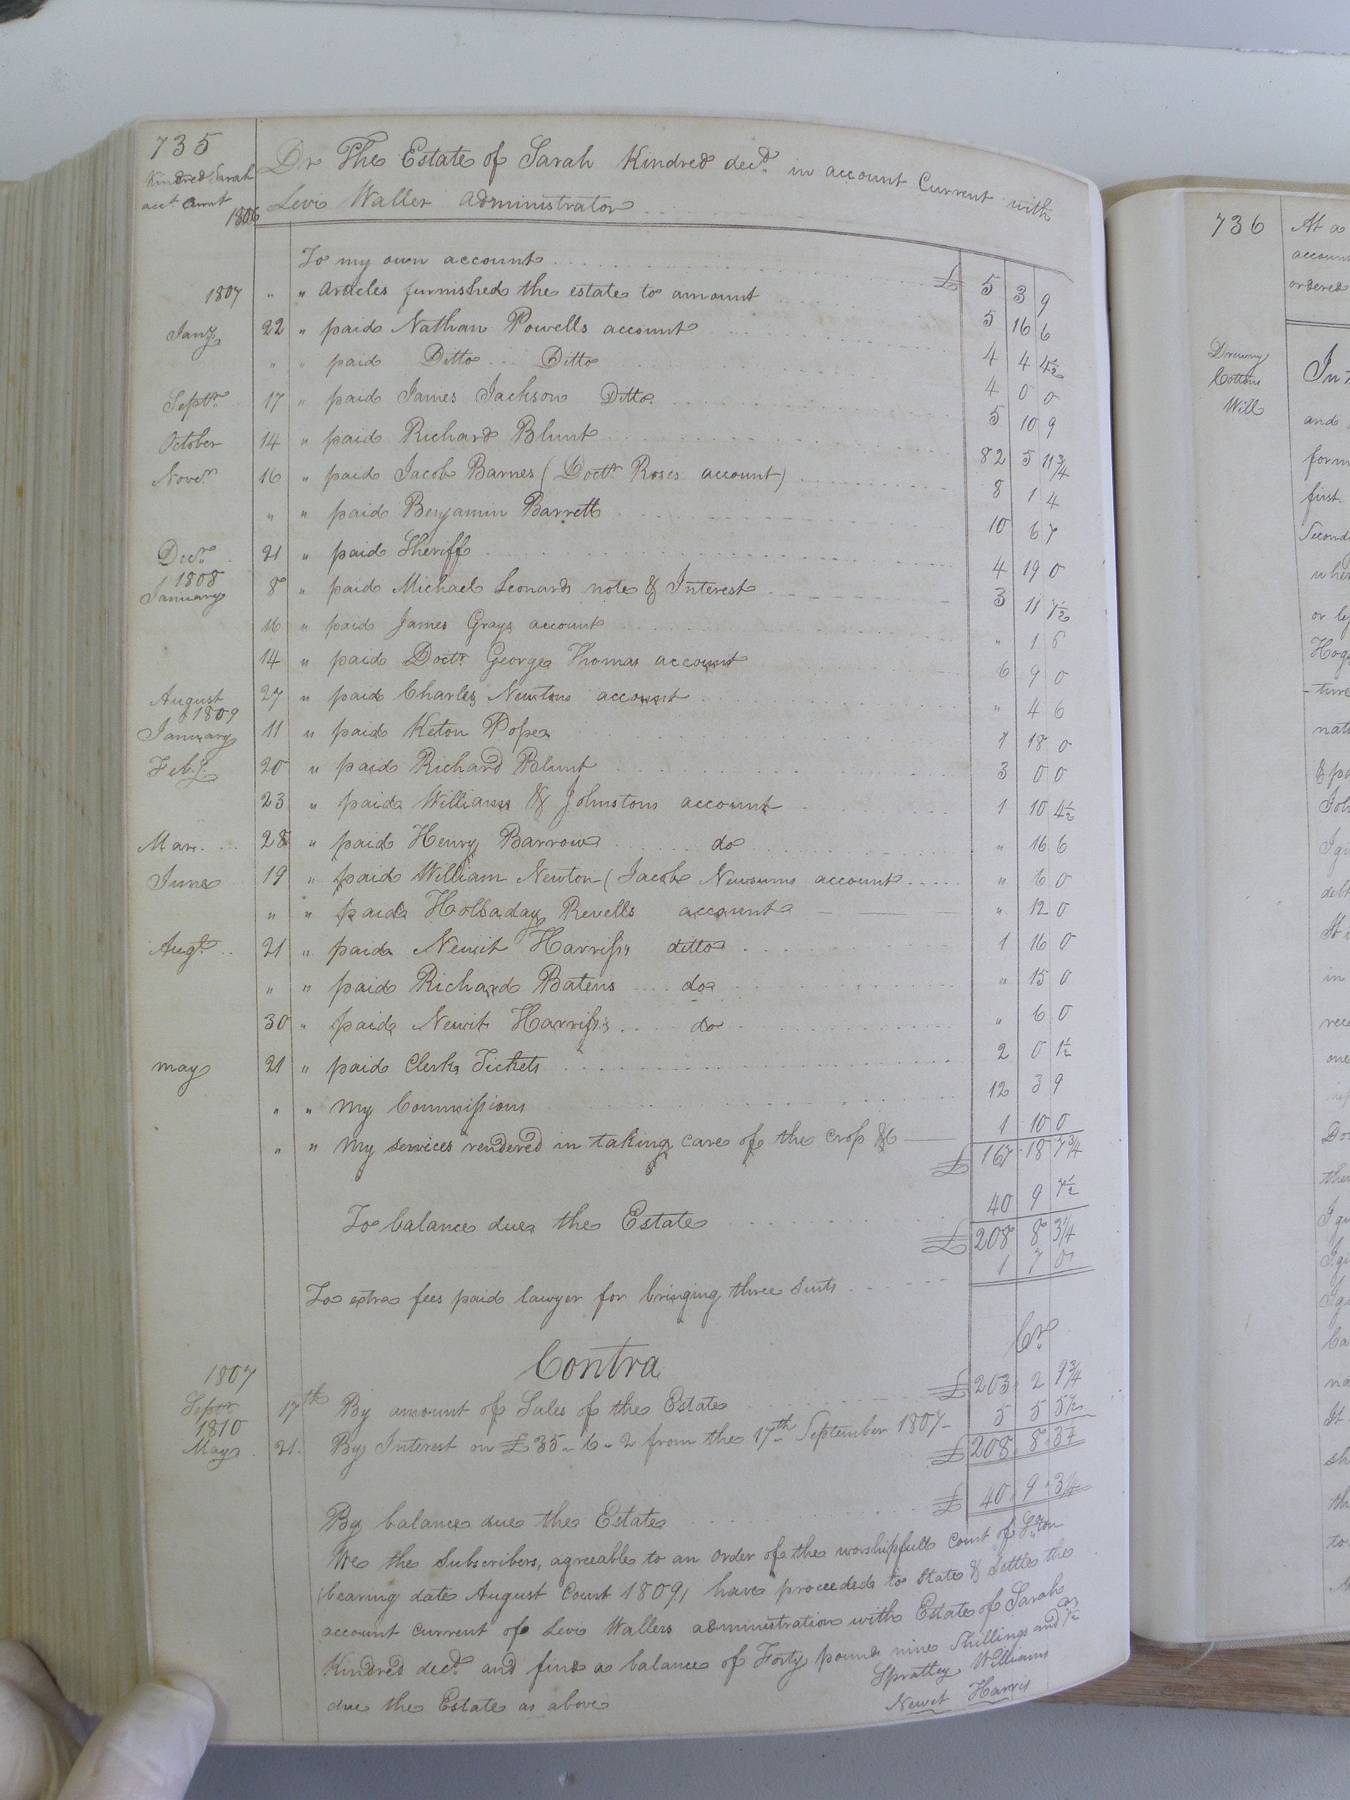 735
Kindred Sarah
acct Curnt
1806
Dr The Estate of Sarah Kindred decd. in account Current with
Levi Waller administrator
To my own account £ 5 3 9
1807 " " articles furnished the estate to amount 5 16 6
Jany 22 " paid Nathan Powells account 4 4 4½
" " paid Ditto Ditto 4 0 0
Septr. 17 " paid James Jackson Ditto 5 10 9
October 14 " paid Richard Blunt 82 5 11¾
Novr. 16 " paid Jacob Barnes (Doctr. Roses account) 8 1 4
" " paid Benjamin Barrett 10 6 7
Decr. 21 " paid Sheriff 4 19 0
1808
January 8 " paid Michael Leonards note & Interest 3 11 7½
16 " paid James Grays account " 1 6
14 " paid Doctr. George Thomas account 6 9 0
August 27 " paid Charles Newtons account " 4 6
1809
January 11 " paid Keton Pope 1 18 0
Feby. 20 " paid Richard Blunt 3 0 0
23 " paid Williams & Johnstons account 1 10 4½
Mar. 28 " paid Henry Barrow do " 16 6
June 19 " paid William Newton (Jacob Newsums account " 6 0
" " paid Holladay Revells account " 12 0
Augt. 21 " paid Newit Harriss ditto 1 16 0
" " paid Richard Batens do " 15 0
30 " paid Newit Harriss do " 6 0
may 21 " paid Clerks Tickets 2 0 1½
" " my Commissions 12 3 9
" " my services rendered in taking care of the crop &c 1 10 0
£ 167 18 7¾
To balance due the Estate 40 9 7½
£ 208 8 3¼
To extra fees paid lawyer for bringing three suits 1 7 0
Contra Cr.
1807
Septr. 17th By amount of Sales of the Estate £ 203 2 9¾
1810
May 21. By Interest on £35-6-2 from the 17th September 1807 5 5 5½
£ 208 8 3¼
By balance due the Estate £ 40 9 3¼
We the Subscribers, agreeable to an order of the worshipfull Court of
bearing date August Court 1809, have proceeded to state & settle the
account current of Levi Wallers administration with Estate of Sarah
Kindred decd. and find a balance of Forty pounds nine Shillings and 7½
due the Estate as above
Spratley Williams
Newit Harris
736
At a
account
ordered
Drewry
Cottons
Will
In
and
form
first
Second